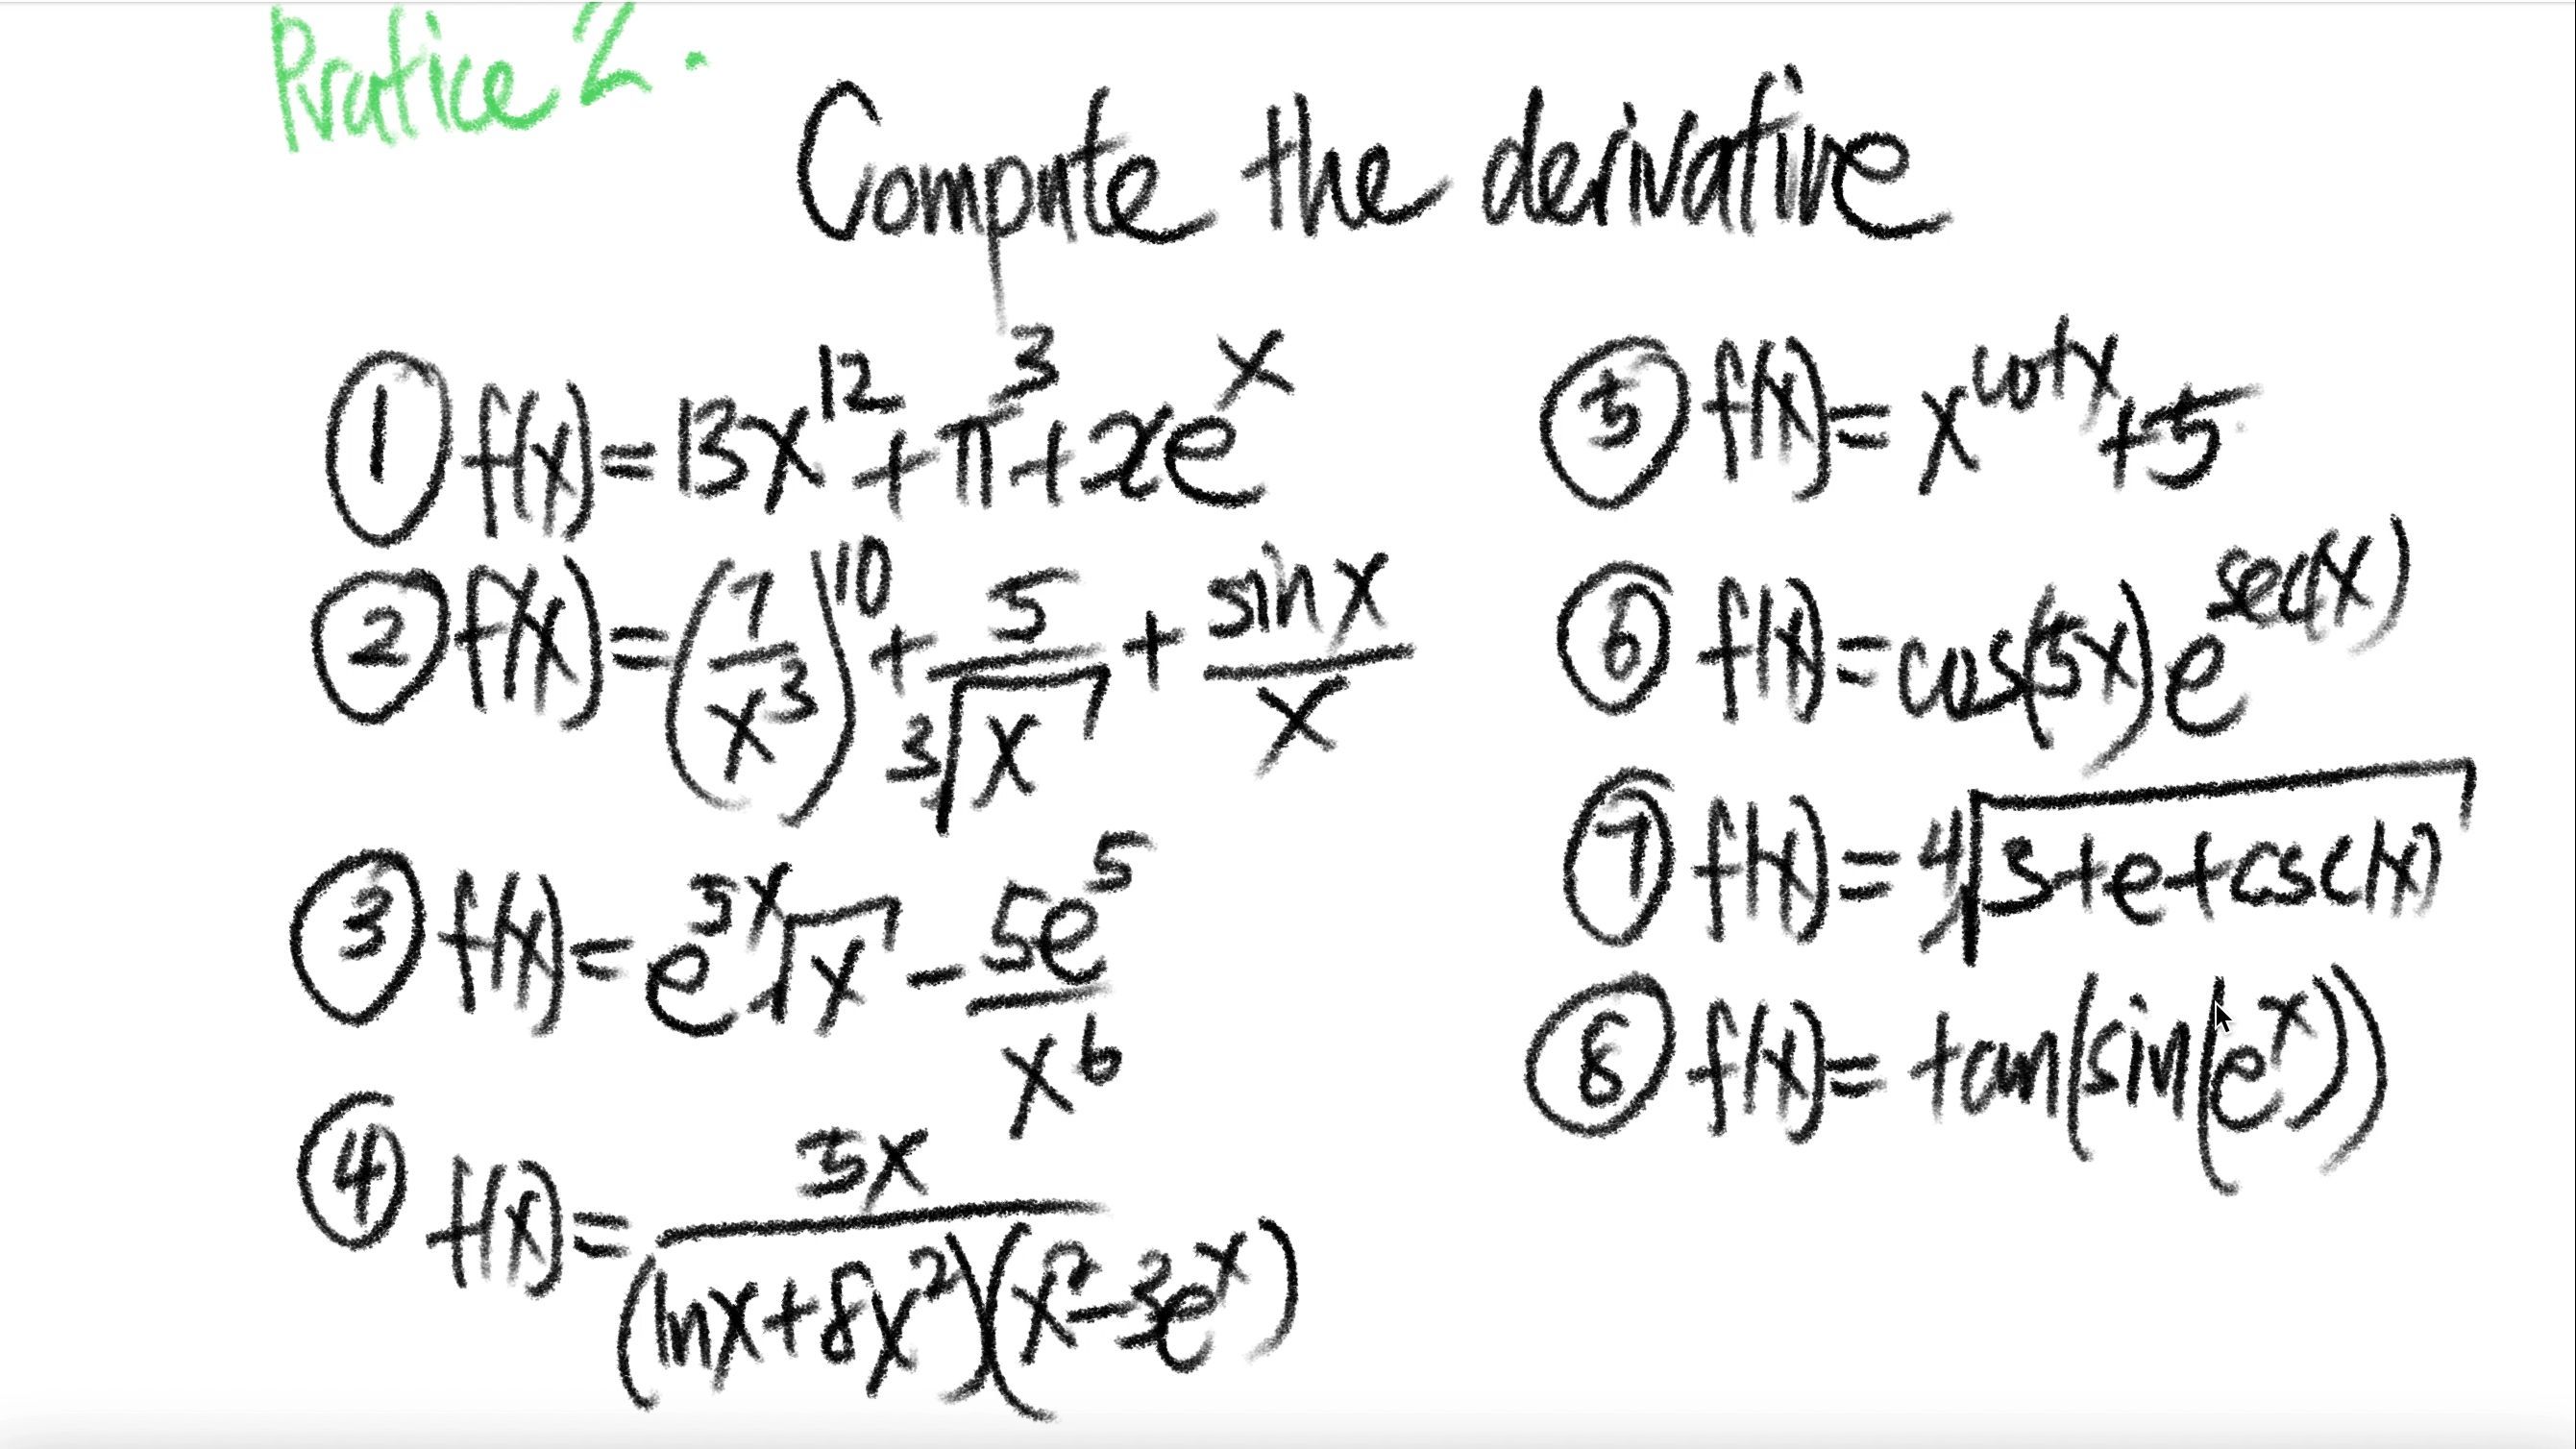 Pratice 2.
Compute the derivative
① f(x) = 13x^12 + π^3 + xe^x
② f(x) = (7/x^3)^10 + 5/∛x + sin x/x
③ f(x) = e^{5x}√x - 5e^5/x^6
④ f(x) = 3x/((ln x + 8x^2)(x^2 - 3e^x))
⑤ f(x) = x^{cot x} + 5
⑥ f(x) = cos(5x) e^{sec(x)}
⑦ f(x) = ∜(3 + e + csc(x))
⑧ f(x) = tan(sin(e^x))